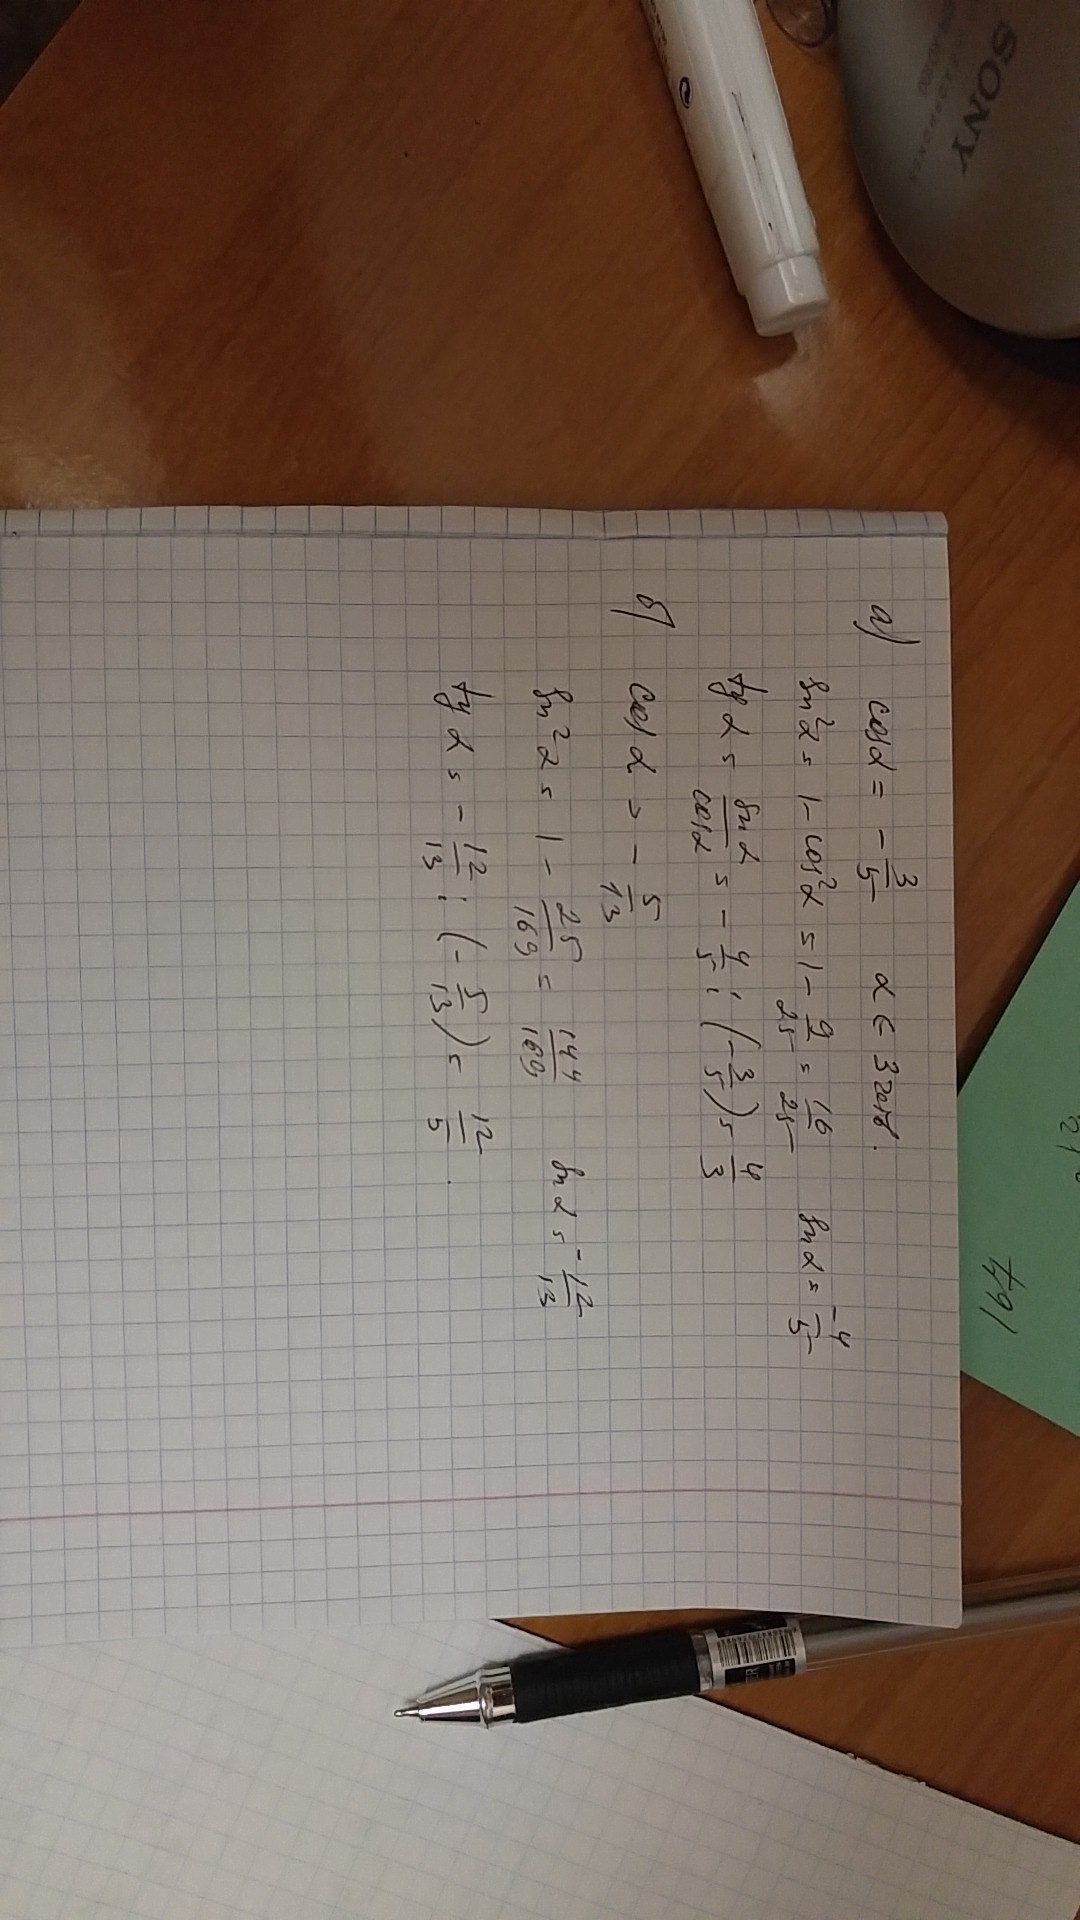 SONY
491
а) cos α = - 3/5 α ∈ 3 четв.
sin² α = 1 - cos² α = 1 - 9/25 = 16/25 sin α = -4/5
tg α = sin α/cos α = - 4/5 : (- 3/5) = 4/3
б) cos α = - 5/13
sin² α = 1 - 25/169 = 144/169 sin α = - 12/13
tg α = - 12/13 : (- 5/13) = 12/5.